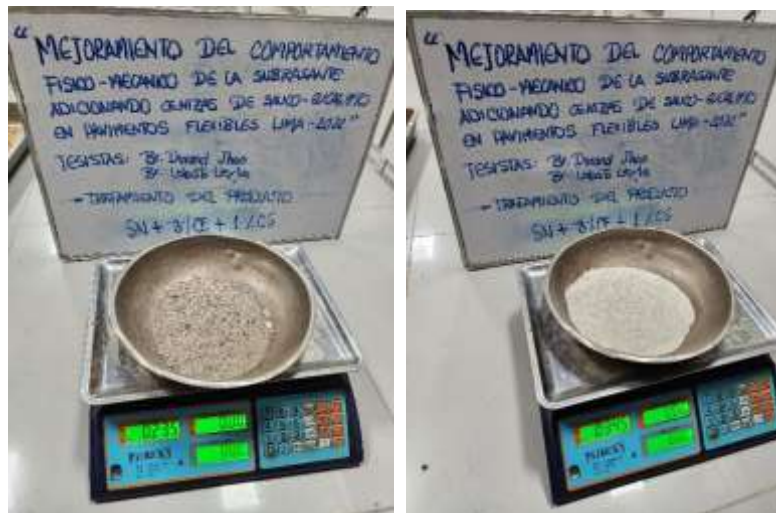 "MEJORAMIENTO DEL COMPORTAMIENTO
FISICO-MECANICO DE LA SUBRASANTE
ADICIONANDO CENIZAS DE SAUCO-EUCALIPTO
EN PAVIMENTOS FLEXIBLES LIMA-2022"
TESISTAS: Br. Durand Jhon
Br.
- TRATAMIENTO DEL PRODUCTO
SN + 3%CE + 1%CS
"MEJORAMIENTO DEL COMPORTAMIENTO
FISICO-MECANICO DE LA SUBRASANTE
ADICIONANDO CENIZAS DE SAUCO-EUCALIPTO
EN PAVIMENTOS FLEXIBLES LIMA-2022"
TESISTAS: Br. Durand Jhon
Br.
- TRATAMIENTO DEL PRODUCTO
SN + 3%CE + 1%CS